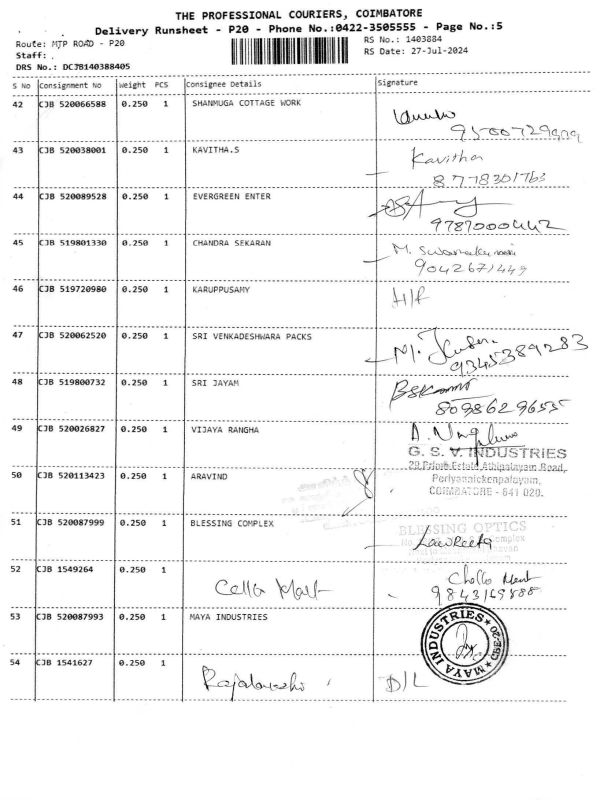 THE PROFESSIONAL COURIERS, COIMBATORE
Delivery Runsheet - P20 - Phone No.:0422-3505555 - Page No.:5
Route: MTP ROAD - P20
RS No.: 1403884
Staff: .
RS Date: 27-Jul-2024
DRS No.: DCJB140388405
S No Consignment No Weight PCS Consignee Details Signature
42 CJB 520066588 0.250 1 SHANMUGA COTTAGE WORK
43 CJB 520038001 0.250 1 KAVITHA.S Kavitha
8778301763
44 CJB 520089528 0.250 1 EVERGREEN ENTER
9787000442
45 CJB 519801330 0.250 1 CHANDRA SEKARAN M.
9042671449
46 CJB 519720980 0.250 1 KARUPPUSAMY H/F
47 CJB 520062520 0.250 1 SRI VENKADESHWARA PACKS M.
9345389283
48 CJB 519800732 0.250 1 SRI JAYAM
8098629655
49 CJB 520026827 0.250 1 VIJAYA RANGHA A.
G. S. V. INDUSTRIES
Athipalayam Road,
Periyanaickenpalayam,
COIMBATORE - 641 020.
50 CJB 520113423 0.250 1 ARAVIND
51 CJB 520087999 0.250 1 BLESSING COMPLEX
BLESSING OPTICS
Complex
52 CJB 1549264 0.250 1 Cello Mart
53 CJB 520087993 0.250 1 MAYA INDUSTRIES
MAYA INDUSTRIES CBE-20
54 CJB 1541627 0.250 1 Rajalakshi D/L